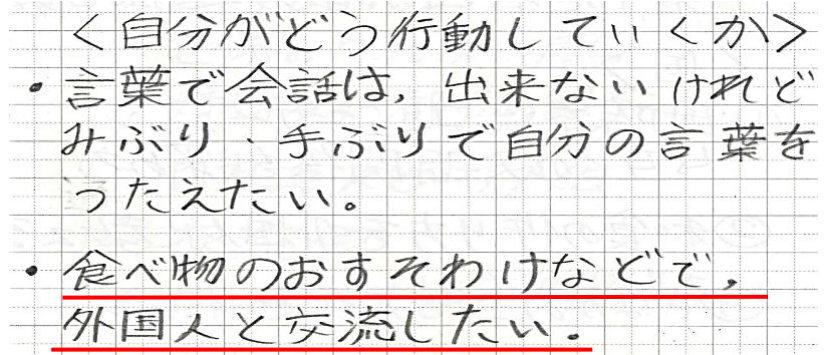 ＜自分がどう行動していくか＞
・言葉で会話は，出来ないけれど
みぶり・手ぶりで自分の言葉を
つたえたい。
・食べ物のおすそわけなどで，
外国人と交流したい。